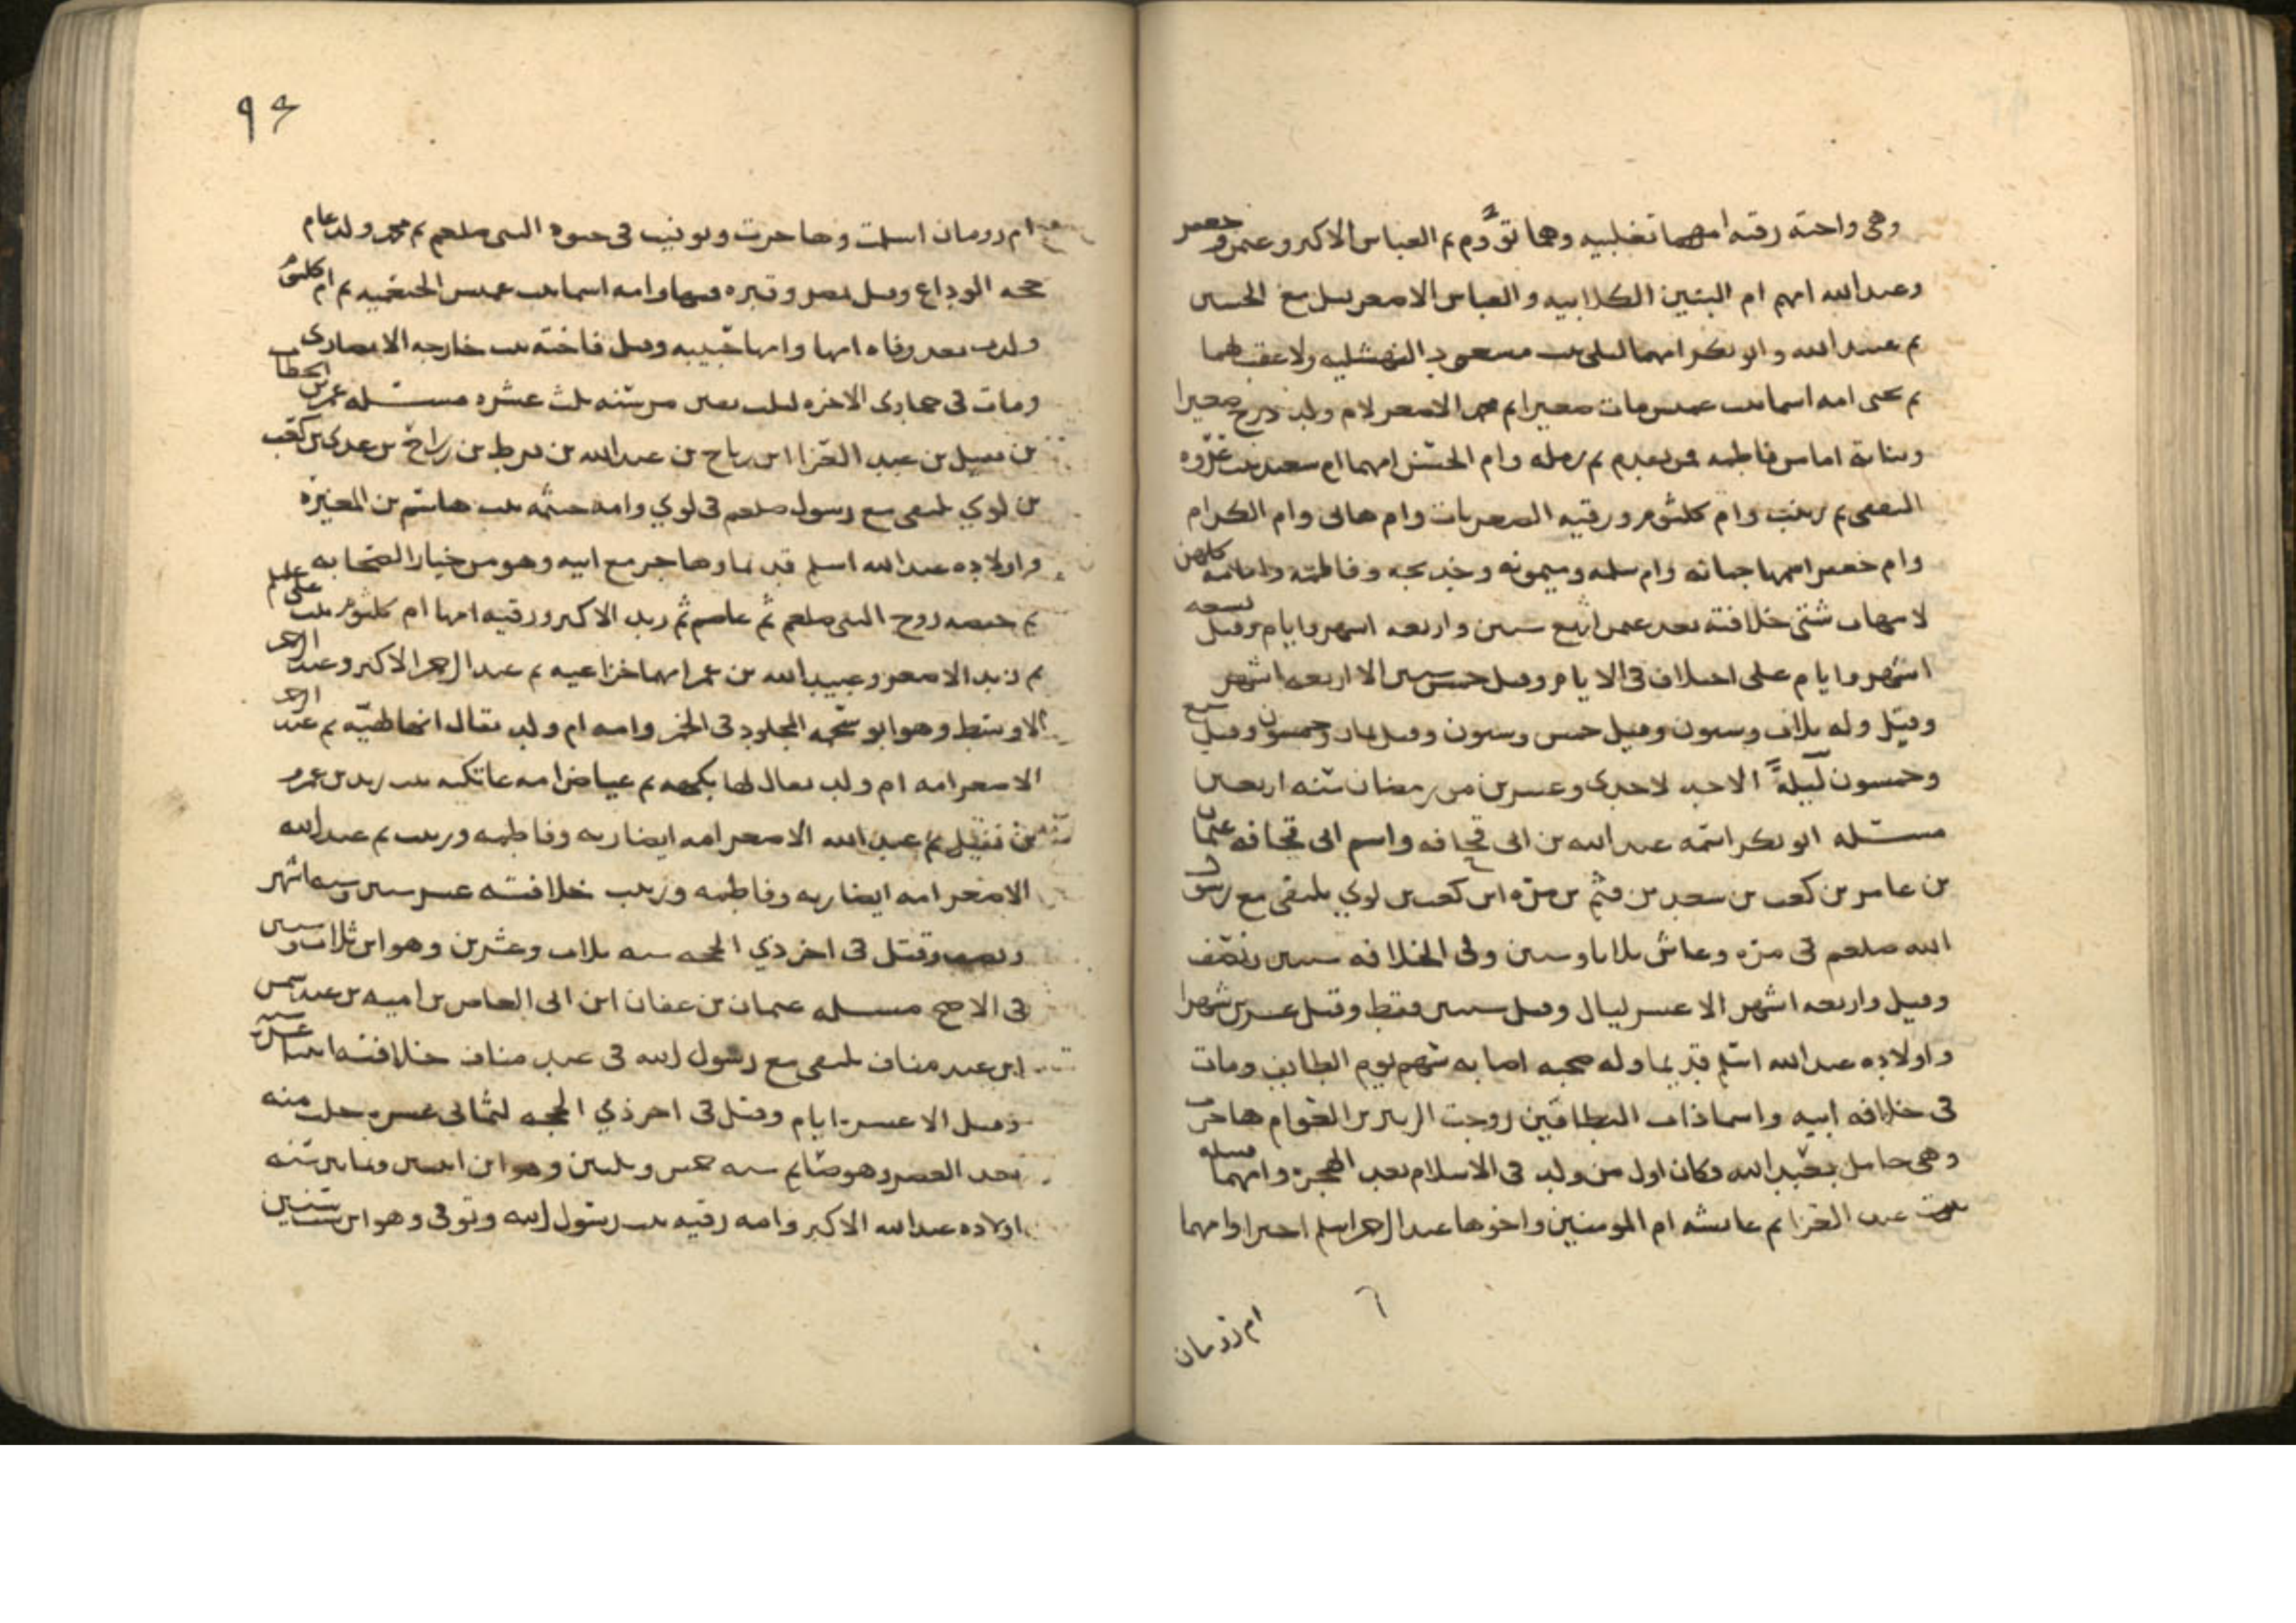 وهى واخته رقيه امهما تغلبيه وهما توَّم ثم العباس الاكبر وعثمن وجعفر
وعبدالله امهم ام البنين الكلابيه والعباس الاصغر قتل مع الحسين
ثم عبدالله وابو بكر امهما ليلى بنت مسعود النهشليه ولا عقب لهما
ثم يحيى امه اسما بنت عميس مات صغيرا ثم محمد الاصغر لام ولد درج صغيرا
وبناته اما من فاطمه فمن تقدم ثم رمله وام الحسن امهما ام سعيد بنت عروه
الثقفى ثم زينب وام كلثوم ورقيه الصغريات وام هانى وام الكرام
وام جعفر اسمها جمانه وام سلمه وميمونه وخديجه وفاطمه وامامه كلهن
لامهات شتى خلافته بعد عثمن اربع سنين واربعه اشهر وايام وقيل تسعه
اشهر وايام على اختلاف فى الايام وقيل خمس سنين الا اربعه اشهر
وقتل وله ثلاث وستون وقيل خمس وستون وقيل ثمان وخمسون وقيل سبع
وخمسون ليلةً الاحد لاحدى وعشرين من رمضان سنه اربعين
مسئله ابو بكر اسمه عبدالله بن ابى قحافه واسم ابى قحافه عثمان
بن عامر بن كعب بن سعد بن تيم بن مرّه ابن كعب بن لوي يلتقى مع رسول
الله صلعم فى مرّه وعاش ثلاثا وستين وولى الخلافه سنتين ونصف
وقيل واربعه اشهر الا عشر ليال وقيل سنتين فقط وقيل عشرين شهرا
واولاده عبدالله اسلم قديما وله صحبه اصابه سهم يوم الطايف ومات
فى خلافه ابيه واسما ذات النطاقين زوجت الزبير بن العوام هاجرت
وهى حامل بعبدالله فكان اول من ولد فى الاسلام بعد الهجره وامهما قتيله
بنت عبد العزا ثم عائشه ام المومنين واخوها عبدالرحمن اسلم اخيرا وامهما
ام رومان
٩٤
ام رومان اسلمت وهاجرت وتوفيت فى حيوه النبى صلعم ثم محمد ولد عام
حجه الوداع وقتل بمصر وقبره فيها وامه اسما بنت عميس الخثعميه ثم ام كلثوم
ولدت بعد وفاه ابيها وامها حبيبه وقيل فاخته بنت خارجه الانصارى
ومات فى جمادى الاخره لثلث بقين من سنه ثلث عشره مسئله عمر بن الخطاب
بن نفيل بن عبد العزا ابن رياح بن عبدالله بن قرط بن رزاح بن عدى بن كعب
بن لوي يلتقى مع رسول صلعم فى لوي وامه حنتمه بنت هاشم بن المغيره
واولاده عبدالله اسلم قديما وهاجر مع ابيه وهو من خيار الصحابه
ثم حفصه زوج النبى صلعم ثم عاصم ثم زيد الاكبر ورقيه امها ام كلثوم بنت على
ثم زيد الاصغر وعبيدالله بن عمر امهما خزاعيه ثم عبدالرحمن الاكبر وعبد الرحمن
الاوسط وهو ابو شحمه المجلود فى الخمر وامه ام ولد يقال لها لهيّه ثم عبد الرحمن
الاصغر امه ام ولد يقال لها فكيهه ثم عياض امه عاتكه بنت زيد بن عمرو
بن نفيل ثم عبدالله الاصغر امه ايضا ربه وفاطمه وزينب ثم عبدالله
الاصغر امه ايضا ربه وفاطمه وزينب خلافته عشر سنين وسته اشهر
ونصف وقتل فى اخر ذي الحجه سنه ثلاث وعشرين وهو ابن ثلاث وستين
فى الاصح مسئله عثمان بن عفان ابن ابى العاص بن اميه بن عبد شمس
ابن عبد مناف يلتقى مع رسول الله فى عبد مناف خلافته اثنتا عشره سنه
وقيل الا عشره ايام وقتل فى اخر ذي الحجه لثمانى عشره خلت منه
بعد العصر وهو صائم سنه خمس وثلثين وهو ابن اثنين وثمانين سنه
اولاده عبدالله الاكبر وامه رقيه بنت رسول الله وتوفى وهو ابن ست سنين